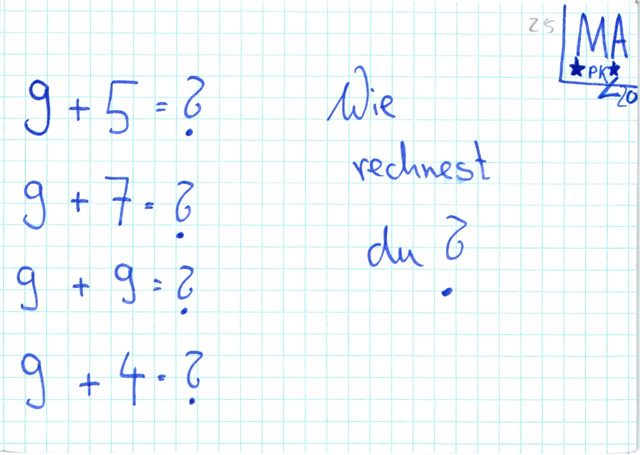 25
MA
★PK★
<20
9 + 5 = ?
9 + 7 = ?
9 + 9 = ?
9 + 4 = ?
Wie
rechnest
du ?